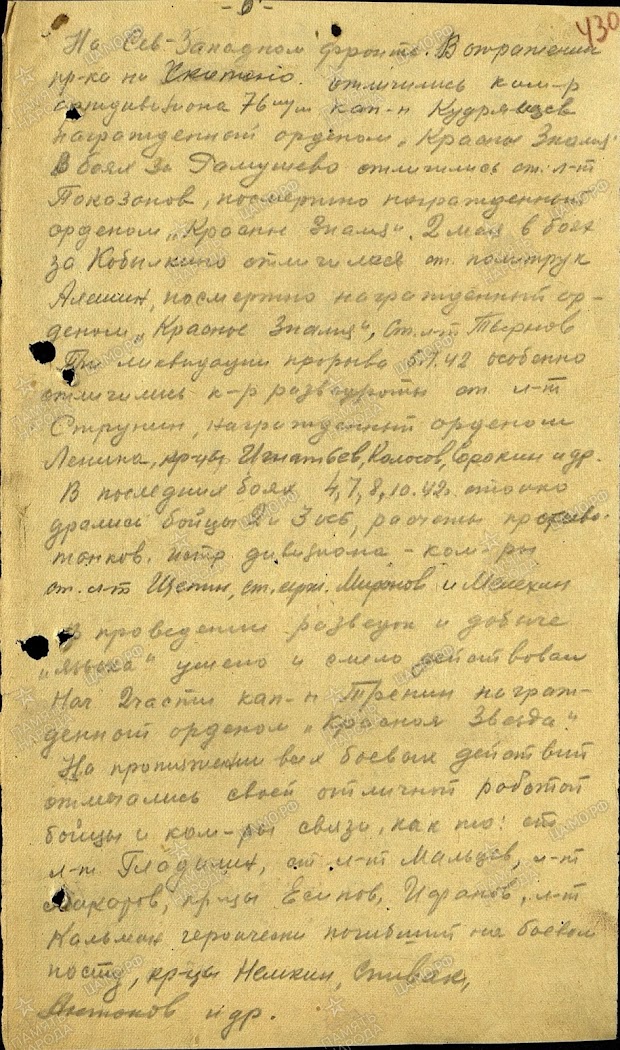 - 6 -
430
На Сев-Западном фронте. В отражении
пр-ка на отличились ком-р
артдивизиона 76 м/м кап-н Кудрявцев
награжденный орденом „Красное Знамя"
В боях за Рамушево отличились ст. л-т
Показанов, посмертно награжденный
орденом „Красное Знамя". 2 мая в боях
за Кобылкино отличился ст. политрук
Алешин, посмертно награжденный ор-
деном „Красное Знамя", ст. л-т
При ликвидации прорыва 42 особенно
отличились к-р разведроты ст л-т
Струнин, награжденный орденом
Ленина, кр-цы Игнатьев, Колосов, Сорокин и др.
В последних боях 4, 7, 8, 10.42г. стойко
дрались бойцы 2 и 3 осб, расчеты противо-
танков. истр дивизиона - ком-ры
ст. л-т Щепин, ст. серж. Миронов и Мелехин
В проведении разведок и добыче
„языка" умело и смело действовал
Нач 2 части кап-н Тренин награж-
денный орденом „Красная Звезда".
На протяжении всех боевых действий
отмечались своей отличной работой
бойцы и ком-ры связи, как то: ст
л-т Гладилин, ст л-т Мальцев, л-т
Макаров, кр-цы Есипов, л-т
Кальман героически погибший на боевом
посту, кр-цы Немкин, Спивак,
Антонов и др.
ПАМЯТЬ НАРОДА
ЦАМО.РФ